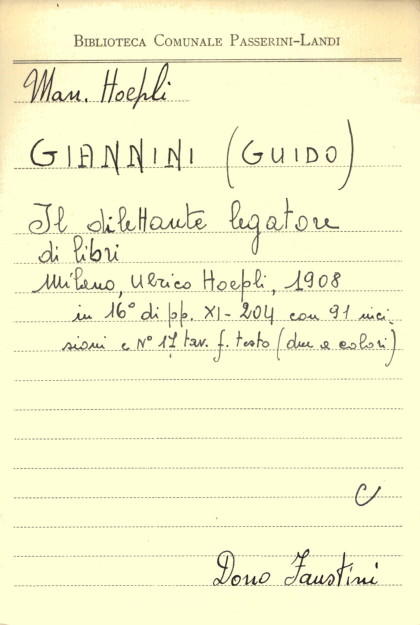 BIBLIOTECA COMUNALE PASSERINI-LANDI
Man. Hoepli
GIANNINI (GUIDO)
Il dilettante legatore
di libri
Milano, Ulrico Hoepli, 1908
in 16° di pp. XI-204 con 91 inci-
sioni e N° 17 tav. f. testo (due a colori)
C
Dono Faustini